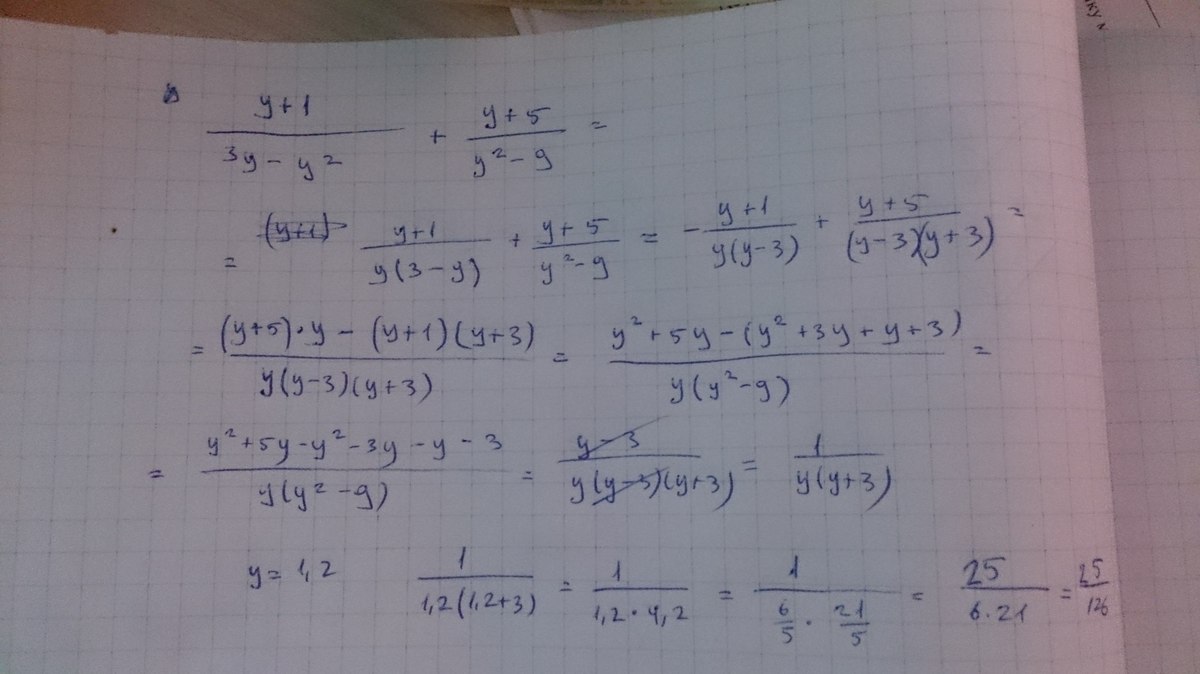 (y+1)/(3y-y²) + (y+5)/(y²-9) =
= (y+1)/(y(3-y)) + (y+5)/(y²-9) = -(y+1)/(y(y-3)) + (y+5)/((y-3)(y+3)) =
= ((y+5)·y-(y+1)(y+3))/(y(y-3)(y+3)) = (y²+5y-(y²+3y+y+3))/(y(y²-9)) =
= (y²+5y-y²-3y-y-3)/(y(y²-9)) = (y-3)/(y(y-3)(y+3)) = 1/(y(y+3))
y=1,2 1/(1,2(1,2+3)) = 1/(1,2·4,2) = 1/(6/5·21/5) = 25/(6·21) = 25/126